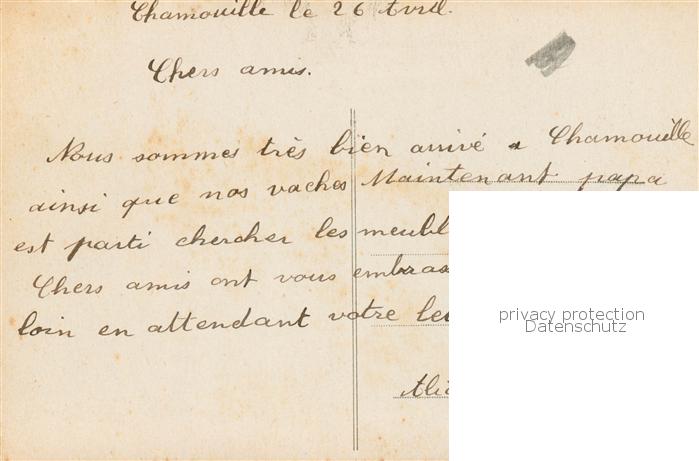 Chamouille le 26 Avril.
Chers amis.
Nous sommes très bien arrivé a Chamouille
ainsi que nos vaches Maintenant papa
est parti chercher les meubl
Chers amis ont vous embras
loin en attendant votre
privacy protection
Datenschutz